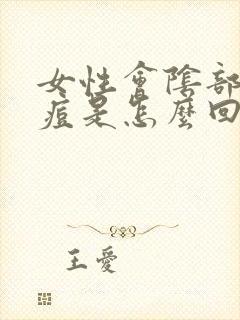 女性會陰部
痘是怎麼回
王愛